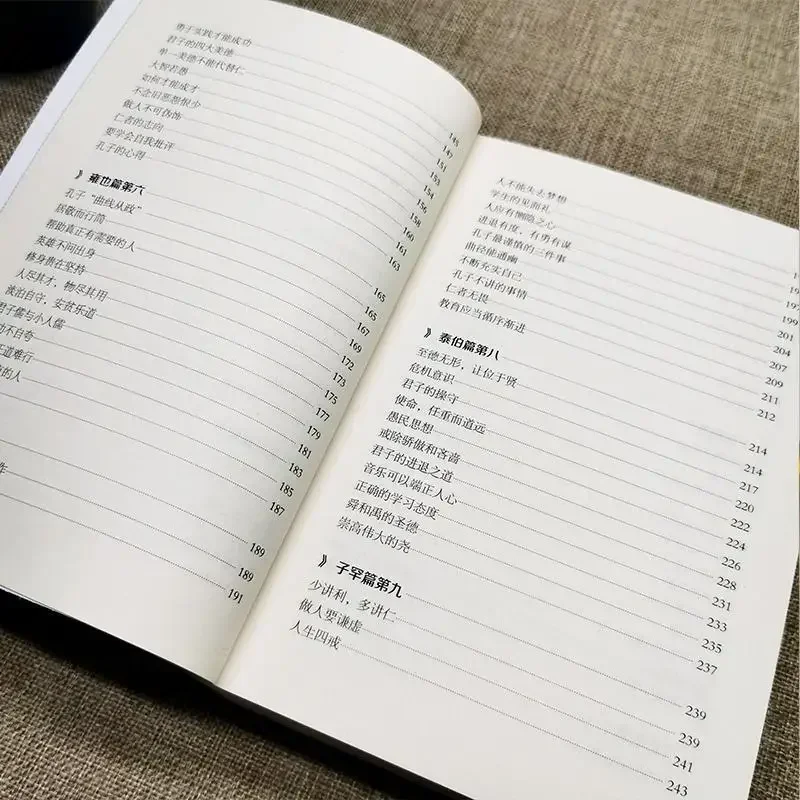 勇于实践才能成功 145
君子的四大美德 147
单一美德不能代替仁 151
大智若愚 153
如何才能成才 154
不念旧恶怨恨少 156
做人不可伪饰 158
仁者的志向 160
要学会自我批评 161
孔子的心得 163
》 雍也篇第六 165
孔子“曲线从政” 165
居敬而行简 167
帮助真正有需要的人 169
英雄不问出身 172
修身贵在坚持 173
人尽其才，物尽其用 175
淡泊自守，安贫乐道 177
君子儒与小人儒 179
功不自夸 181
正道难行 183
的人 185
187
189
作 189
191
人不能失去梦想
学生的见面礼
人应有恻隐之心 197
进退有度，有勇有谋 199
孔子最谨慎的三件事 201
曲径能通幽 204
不断充实自己 207
孔子不讲的事情 209
仁者无畏 211
教育应当循序渐进 212
》 泰伯篇第八 214
至德无形，让位于贤 214
危机意识 217
君子的操守 220
使命，任重而道远 222
愚民思想 224
戒除骄傲和吝啬 226
君子的进退之道 228
音乐可以端正人心 231
正确的学习态度 233
舜和禹的圣德 235
崇高伟大的尧 237
》 子罕篇第九 239
少讲利，多讲仁 239
做人要谦虚 241
人生四戒 243